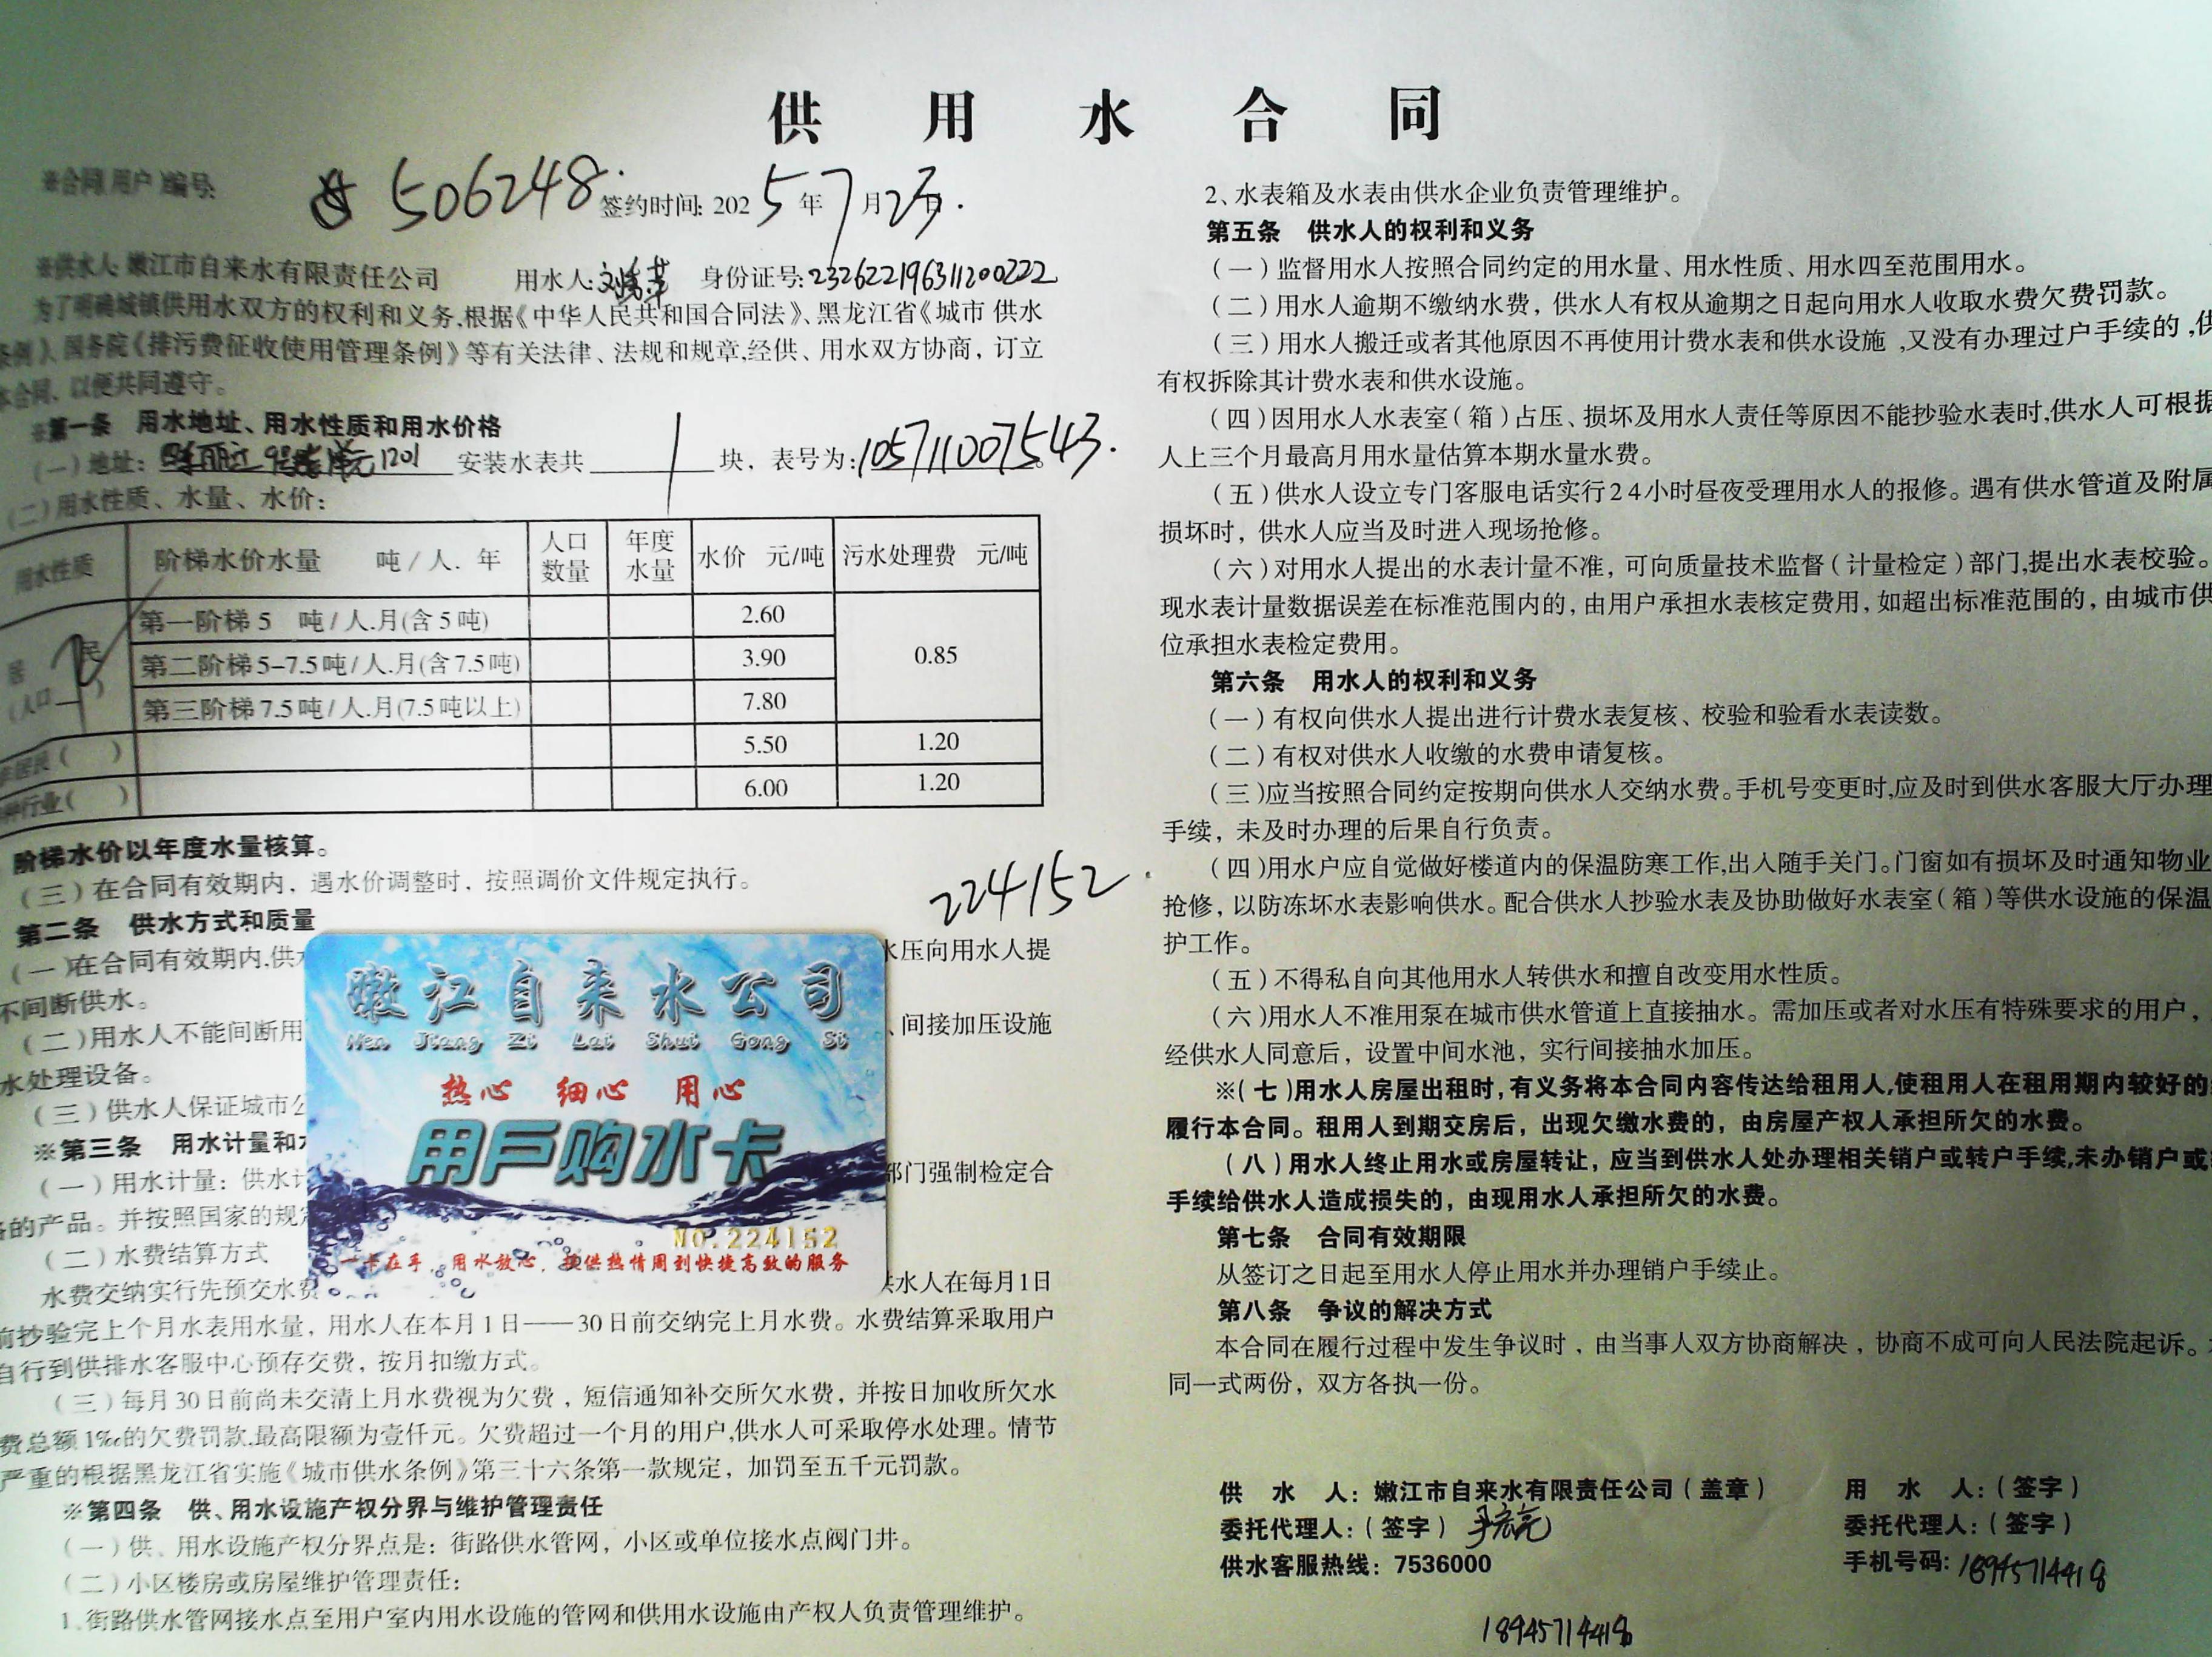 供 用 水 合 同
※合同(用户)编号: 506248. 签约时间: 2025年7月2日.
※供水人:嫩江市自来水有限责任公司 用水人: 身份证号:232622196311200222
为了明确城镇供用水双方的权利和义务,根据《中华人民共和国合同法》、黑龙江省《城市 供水
条例》、国务院《排污费征收使用管理条例》等有关法律、法规和规章,经供、用水双方协商,订立
本合同,以便共同遵守。
※第一条 用水地址、用水性质和用水价格
(一)地址: 1201 安装水表共 1 块,表号为:105711007543.
(二)用水性质、水量、水价:
用水性质 阶梯水价水量 吨/人.年 人口数量 年度水量 水价 元/吨 污水处理费 元/吨
居民 (人口 ) 第一阶梯5 吨/人.月(含5吨) 2.60 0.85
第二阶梯5-7.5吨/人.月(含7.5吨) 3.90
第三阶梯7.5吨/人.月(7.5吨以上) 7.80
非居民( ) 5.50 1.20
特种行业( ) 6.00 1.20
阶梯水价以年度水量核算。
(三)在合同有效期内,遇水价调整时,按照调价文件规定执行。
224152
第二条 供水方式和质量
(一)在合同有效期内,供水 水压向用水人提
不间断供水。
(二)用水人不能间断用 、间接加压设施
水处理设备。
(三)供水人保证城市公
※第三条 用水计量和水
(一)用水计量:供水计 部门强制检定合
格的产品。并按照国家的规定
(二)水费结算方式
水费交纳实行先预交水费 供水人在每月1日
前抄验完上个月水表用水量,用水人在本月1日——30日前交纳完上月水费。水费结算采取用户
自行到供排水客服中心预存交费,按月扣缴方式。
(三)每月30日前尚未交清上月水费视为欠费,短信通知补交所欠水费,并按日加收所欠水
费总额1‰的欠费罚款,最高限额为壹仟元。欠费超过一个月的用户,供水人可采取停水处理。情节
严重的根据黑龙江省实施《城市供水条例》第三十六条第一款规定,加罚至五千元罚款。
※第四条 供、用水设施产权分界与维护管理责任
(一)供、用水设施产权分界点是:街路供水管网,小区或单位接水点阀门井。
(二)小区楼房或房屋维护管理责任:
1.街路供水管网接水点至用户室内用水设施的管网和供用水设施由产权人负责管理维护。
嫩江自来水公司
Nen Jiang Zi Lai Shui Gong Si
热心 细心 用心
用户购水卡
NO.224152
一卡在手,用水放心,提供热情周到快捷高效的服务
2、水表箱及水表由供水企业负责管理维护。
第五条 供水人的权利和义务
(一)监督用水人按照合同约定的用水量、用水性质、用水四至范围用水。
(二)用水人逾期不缴纳水费,供水人有权从逾期之日起向用水人收取水费欠费罚款。
(三)用水人搬迁或者其他原因不再使用计费水表和供水设施,又没有办理过户手续的,供
有权拆除其计费水表和供水设施。
(四)因用水人水表室(箱)占压、损坏及用水人责任等原因不能抄验水表时,供水人可根据
人上三个月最高月用水量估算本期水量水费。
(五)供水人设立专门客服电话实行24小时昼夜受理用水人的报修。遇有供水管道及附属
损坏时,供水人应当及时进入现场抢修。
(六)对用水人提出的水表计量不准,可向质量技术监督(计量检定)部门,提出水表校验。
现水表计量数据误差在标准范围内的,由用户承担水表核定费用,如超出标准范围的,由城市供
位承担水表检定费用。
第六条 用水人的权利和义务
(一)有权向供水人提出进行计费水表复核、校验和验看水表读数。
(二)有权对供水人收缴的水费申请复核。
(三)应当按照合同约定按期向供水人交纳水费。手机号变更时,应及时到供水客服大厅办理
手续,未及时办理的后果自行负责。
(四)用水户应自觉做好楼道内的保温防寒工作,出入随手关门。门窗如有损坏及时通知物业
抢修,以防冻坏水表影响供水。配合供水人抄验水表及协助做好水表室(箱)等供水设施的保温
护工作。
(五)不得私自向其他用水人转供水和擅自改变用水性质。
(六)用水人不准用泵在城市供水管道上直接抽水。需加压或者对水压有特殊要求的用户,
经供水人同意后,设置中间水池,实行间接抽水加压。
※(七)用水人房屋出租时,有义务将本合同内容传达给租用人,使租用人在租用期内较好的
履行本合同。租用人到期交房后,出现欠缴水费的,由房屋产权人承担所欠的水费。
(八)用水人终止用水或房屋转让,应当到供水人处办理相关销户或转户手续,未办销户或
手续给供水人造成损失的,由现用水人承担所欠的水费。
第七条 合同有效期限
从签订之日起至用水人停止用水并办理销户手续止。
第八条 争议的解决方式
本合同在履行过程中发生争议时,由当事人双方协商解决,协商不成可向人民法院起诉。
同一式两份,双方各执一份。
供 水 人:嫩江市自来水有限责任公司(盖章) 用 水 人:(签字)
委托代理人:(签字) 委托代理人:(签字)
供水客服热线:7536000 手机号码:18945714418
18945714418